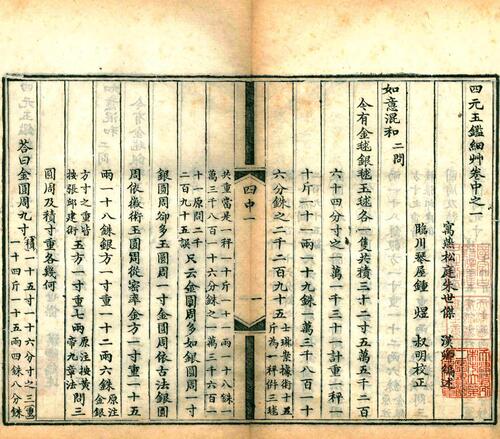 四元玉鑑細艸卷中之一
寓燕松庭朱世傑 漢卿編述
臨川琴屋鍾 煜 叔明校正
如意混和 二問
今有金毬銀毬玉毬各一隻共積三十二寸五千二百
六十四分寸之一萬一千三十一計重一
十斤一十一兩一十九銖一萬三千八百一十
六分銖之二千二百九十五
士琳案據術十五
斤為一秤併三毬
四中一
一
共重當是一秤一十斤一十 兩一十八銖一
萬三千八百一十六分銖之一萬三千六百二
二百九十五誤
只云金圓周多如銀圓周一寸
銀圓周卻多玉圓周一寸金圓周依古法銀圓
周依徽術玉圓周從密率金方一寸重一
兩一十八銖銀方一寸重一十二兩六銖
原注
金銀
方寸之重皆
按張邱建術
玉方一寸重七兩
原注按黃
帝九章法
問三
圓周及積寸重各幾何
答曰金圓周九寸
積一十五寸一十六分寸之三重
一十四斤一十五兩四銖八分銖